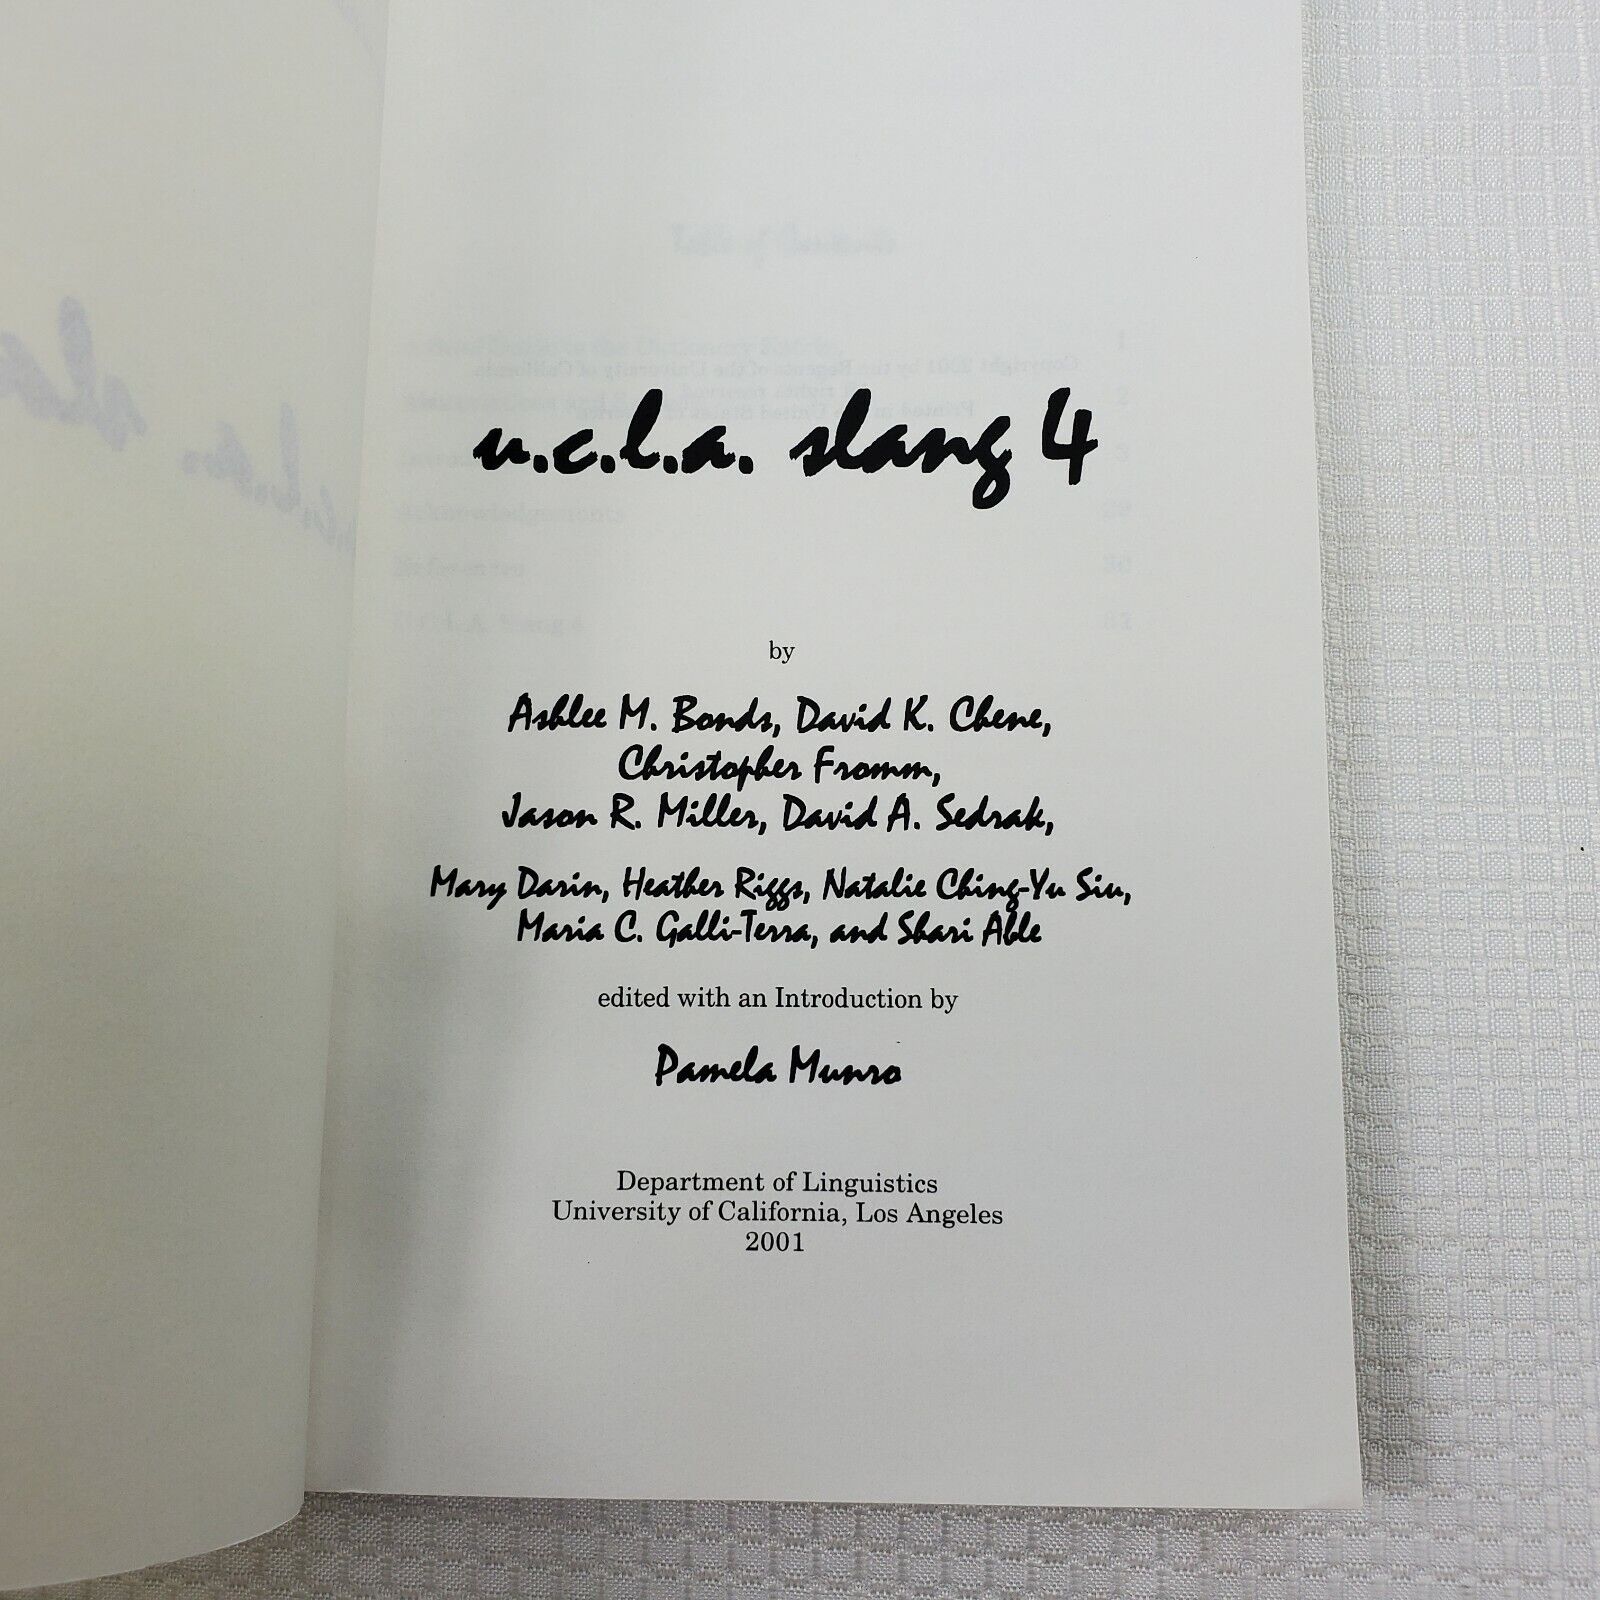 u.c.l.a. slang 4
by
Ashlee M. Bonds, David K. Chene,
Christopher Fromm,
Jason R. Miller, David A. Sedrak,
Mary Darin, Heather Riggs, Natalie Ching-Yu Siu,
Maria C. Galli-Terra, and Shari Able
edited with an Introduction by
Pamela Munro
Department of Linguistics
University of California, Los Angeles
2001